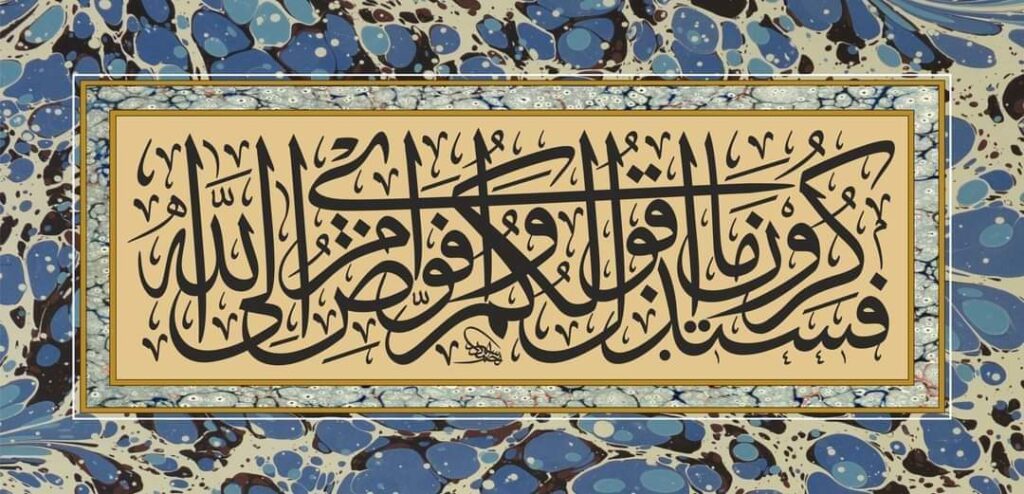 فستذكرون ما أقول لكم وأفوض أمري إلى الله
١٤٤١